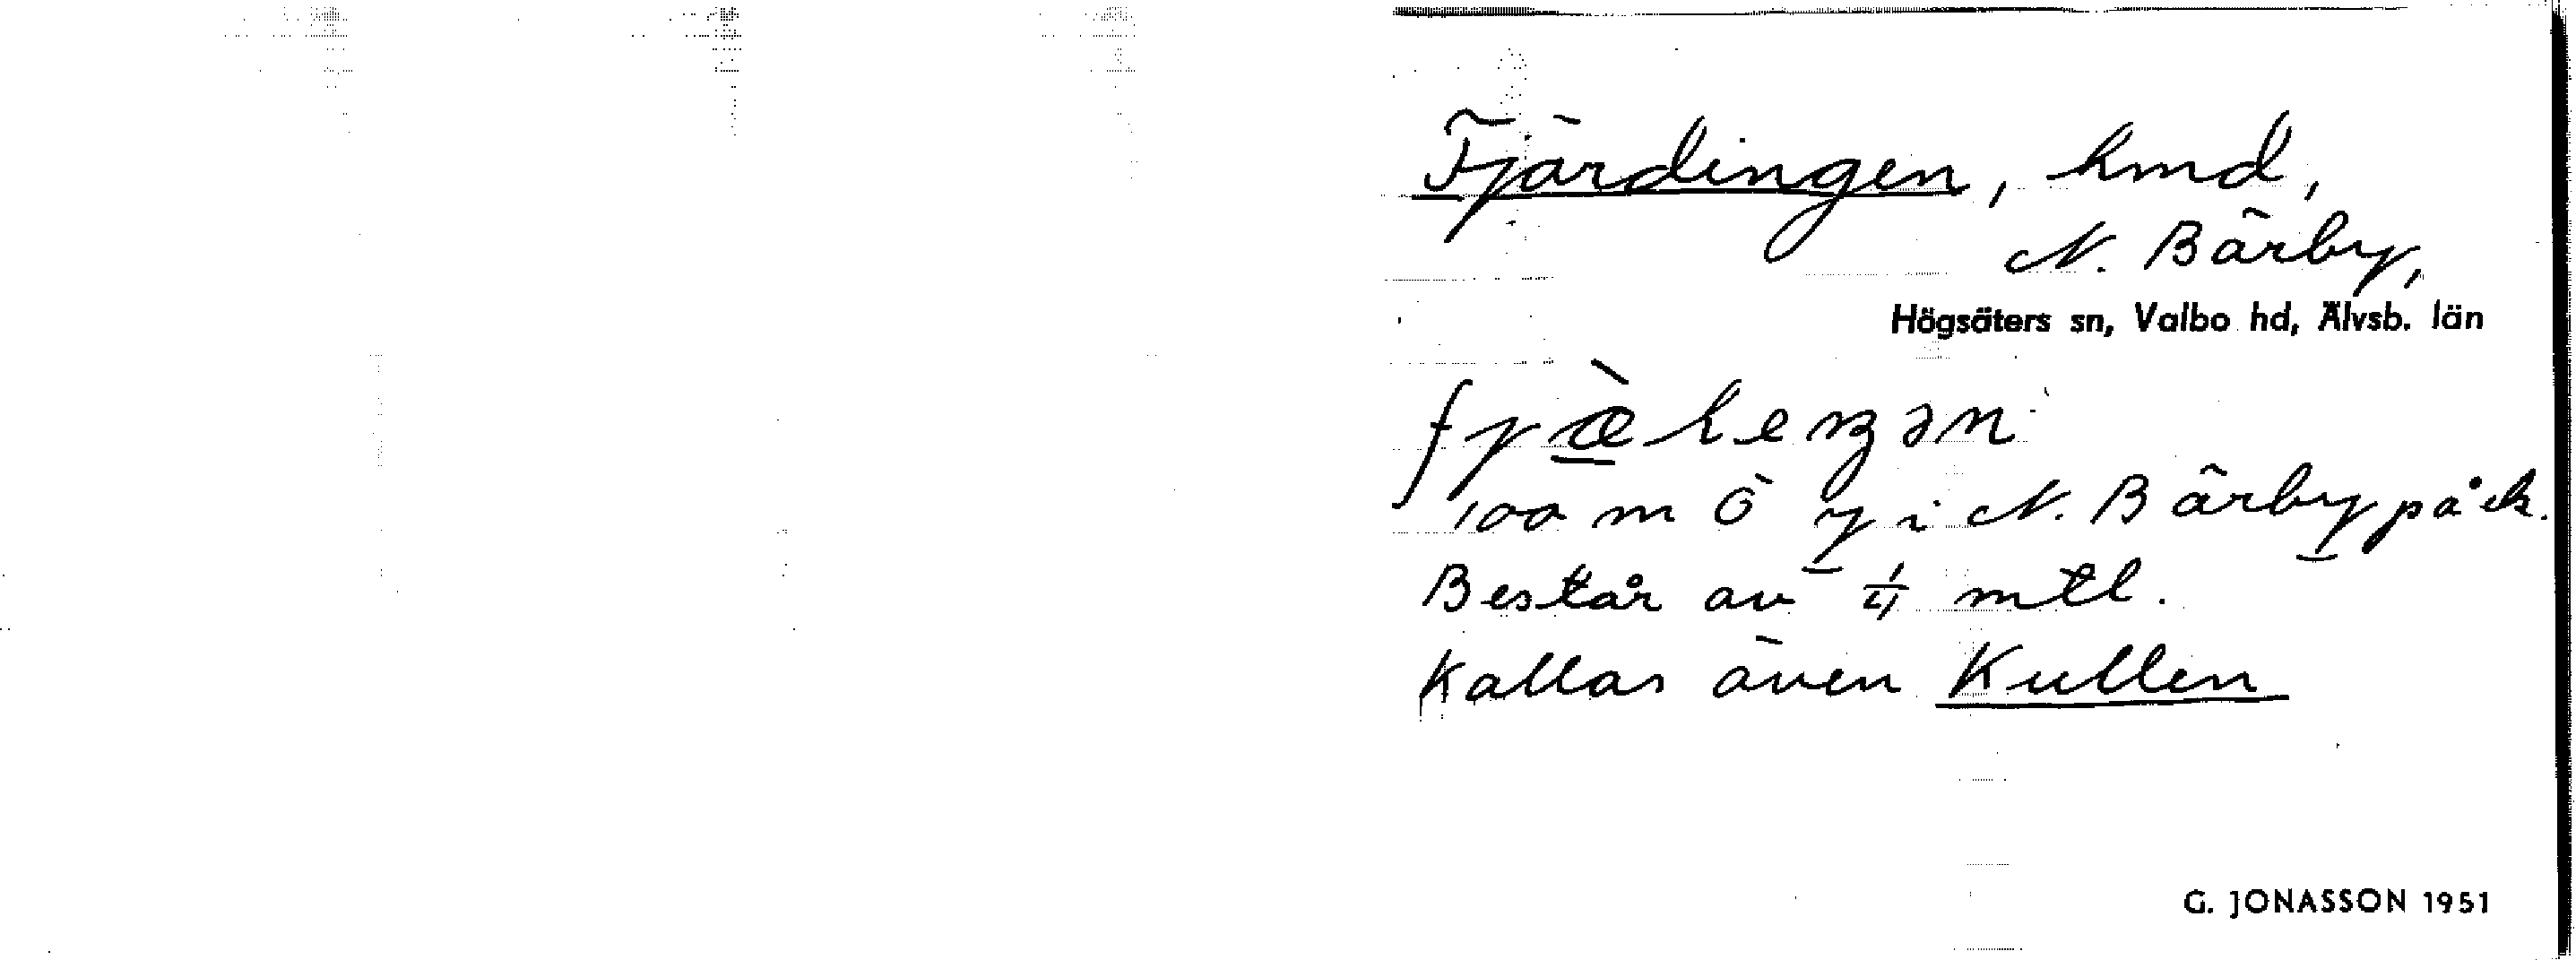 Fjärdingen, hmd,
N. Bärby,
Högsäters sn, Valbo hd, Älvsb. län
100 m Ö y i N. Bärby på ek.
Består av 1/4 mtl.
Kallas även Kullen
G. JONASSON 1951